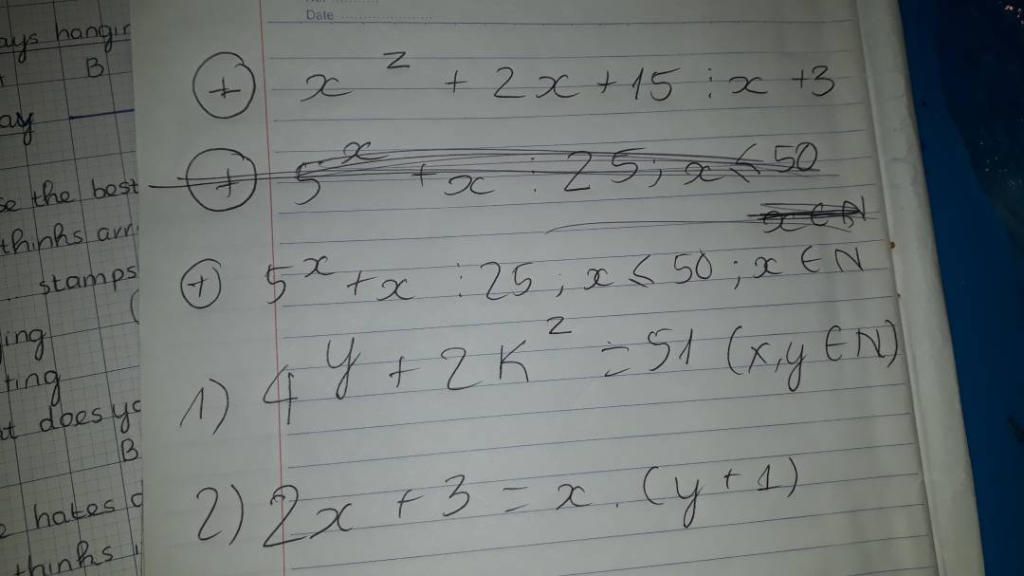 Date
ays hangin
B
ay
se the best
thinks arr
stamps
ing
ting
t does yo
B
e hates
thinks
⊕ x² + 2x + 15 : x + 3
⊕ 5ˣ + x : 25 ; x ≤ 50
x ∈ N
⊕ 5ˣ + x : 25 ; x ≤ 50 ; x ∈ N
1) 4^y + 2K² = 51 (x,y ∈ N)
2) 2x + 3 = x . (y + 1)